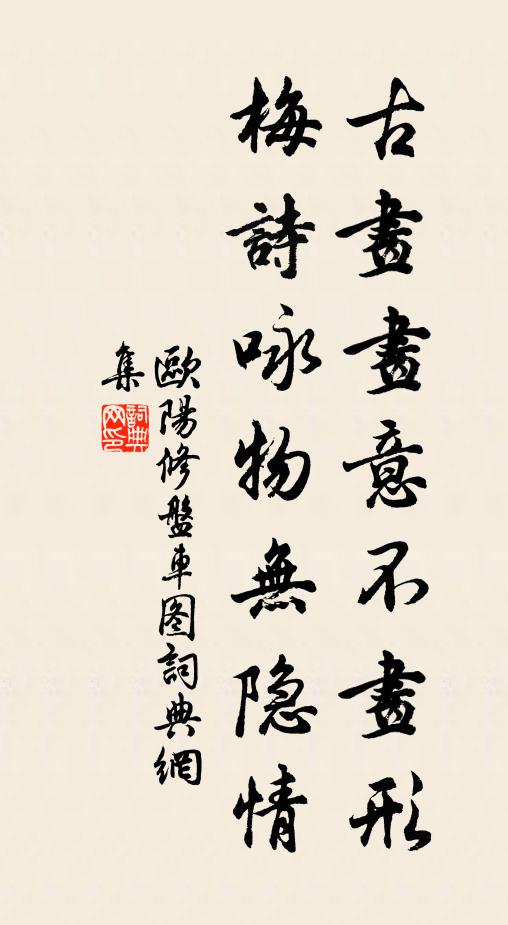 古畫畫意不畫形
梅詩咏物無隐情
歐陽修盤車图詞典網
集
詞典
网印